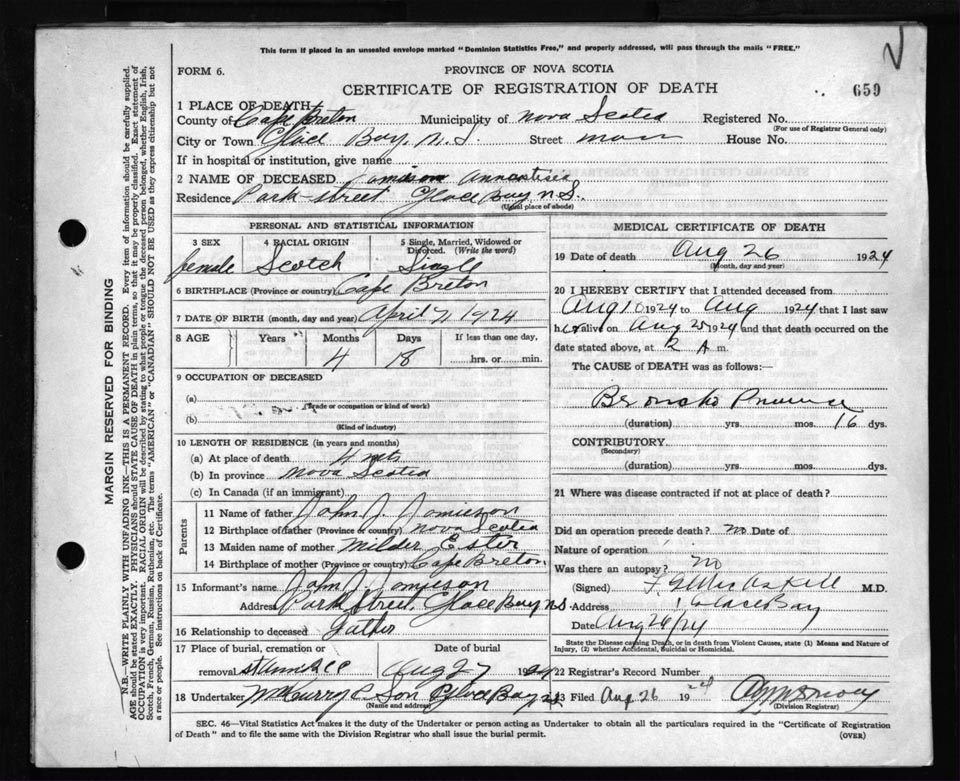 This form if placed in an unsealed envelope marked "Dominion Statistics Free," and properly addressed, will pass through the mails "FREE."
FORM 6.
PROVINCE OF NOVA SCOTIA
CERTIFICATE OF REGISTRATION OF DEATH
659
1 PLACE OF DEATH
County of Cape Breton Municipality of Nova Scotia Registered No.
(For use of Registrar General only)
City or Town Glace Bay, N.S. Street House No.
If in hospital or institution, give name
2 NAME OF DECEASED
Residence Park Street Glace Bay N.S.
(Usual place of abode)
PERSONAL AND STATISTICAL INFORMATION
3 SEX 4 RACIAL ORIGIN 5 Single, Married, Widowed or Divorced. (Write the word)
female Scotch Single
6 BIRTHPLACE (Province or country) Cape Breton
7 DATE OF BIRTH (month, day and year) April 1924
8 AGE Years Months Days If less than one day,
4 18 hrs. or min.
9 OCCUPATION OF DECEASED
(a)
(Trade or occupation or kind of work)
(b)
(Kind of industry)
10 LENGTH OF RESIDENCE (in years and months)
(a) At place of death 4
(b) In province Nova Scotia
(c) In Canada (if an immigrant)
Parents
11 Name of father John J. Jamieson
12 Birthplace of father (Province or country) Nova Scotia
13 Maiden name of mother Ester
14 Birthplace of mother (Province or country) Cape Breton
15 Informant's name John J. Jamieson
Address Park Street, Glace Bay N.S.
16 Relationship to deceased Father
17 Place of burial, cremation or
removal Aug 27 1924
18 Undertaker & Son Glace Bay N.S.
(Name and address)
MEDICAL CERTIFICATE OF DEATH
19 Date of death Aug 26 1924
(Month, day and year)
20 I HEREBY CERTIFY that I attended deceased from
Aug 10 1924 to Aug 1924 that I last saw
her alive on Aug 25 1924 and that death occurred on
date stated above, at 2 A m.
The CAUSE of DEATH was as follows:
Broncho
(duration) yrs. mos. 16 dys.
CONTRIBUTORY
(Secondary)
(duration) yrs. mos. dys.
21 Where was disease contracted if not at place of death?
Did an operation precede death? no Date of
Nature of operation
Was there an autopsy? no
(Signed) M.D.
Address Glace Bay
Date Aug 26/24
State the Disease causing Death, or in death from Violent Causes, state (1) Means and Nature of Injury, (2) whether Accidental, Suicidal or Homicidal.
22 Registrar's Record Number
23 Filed Aug 26 1924
(Division Registrar)
SEC. 46—Vital Statistics Act makes it the duty of the Undertaker or person acting as Undertaker to obtain all the particulars required in the "Certificate of Registration
of Death" and to file the same with the Division Registrar who shall issue the burial permit.
(OVER)
MARGIN RESERVED FOR BINDING
N.B.—WRITE PLAINLY WITH UNFADING INK—THIS IS A PERMANENT RECORD. Every item of information should be carefully supplied.
AGE should be stated EXACTLY. PHYSICIANS should STATE CAUSE OF DEATH in plain terms, so that it may be properly classified. Exact statement of
OCCUPATION is very important. RACIAL ORIGIN will be described by stating to what people or tongue the deceased person belonged, whether English, Irish,
Scotch, French, German, Russian, Ruthenian, etc. The terms "AMERICAN" or "CANADIAN" SHOULD NOT BE USED as they express citizenship but not
a race or people. See instructions on back of Certificate.